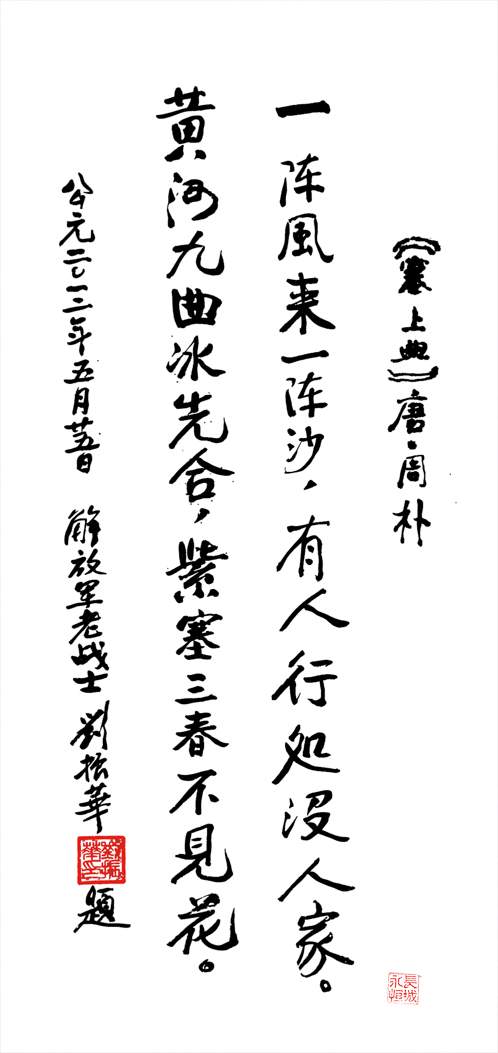 《塞上典》唐·周朴
一阵風来一阵沙，有人行処没人家。
黄河九曲冰先合，紫塞三春不見花。
公元二〇一三年五月廿五日 解放军老战士 劉振華 題
劉振華印
長城永恒